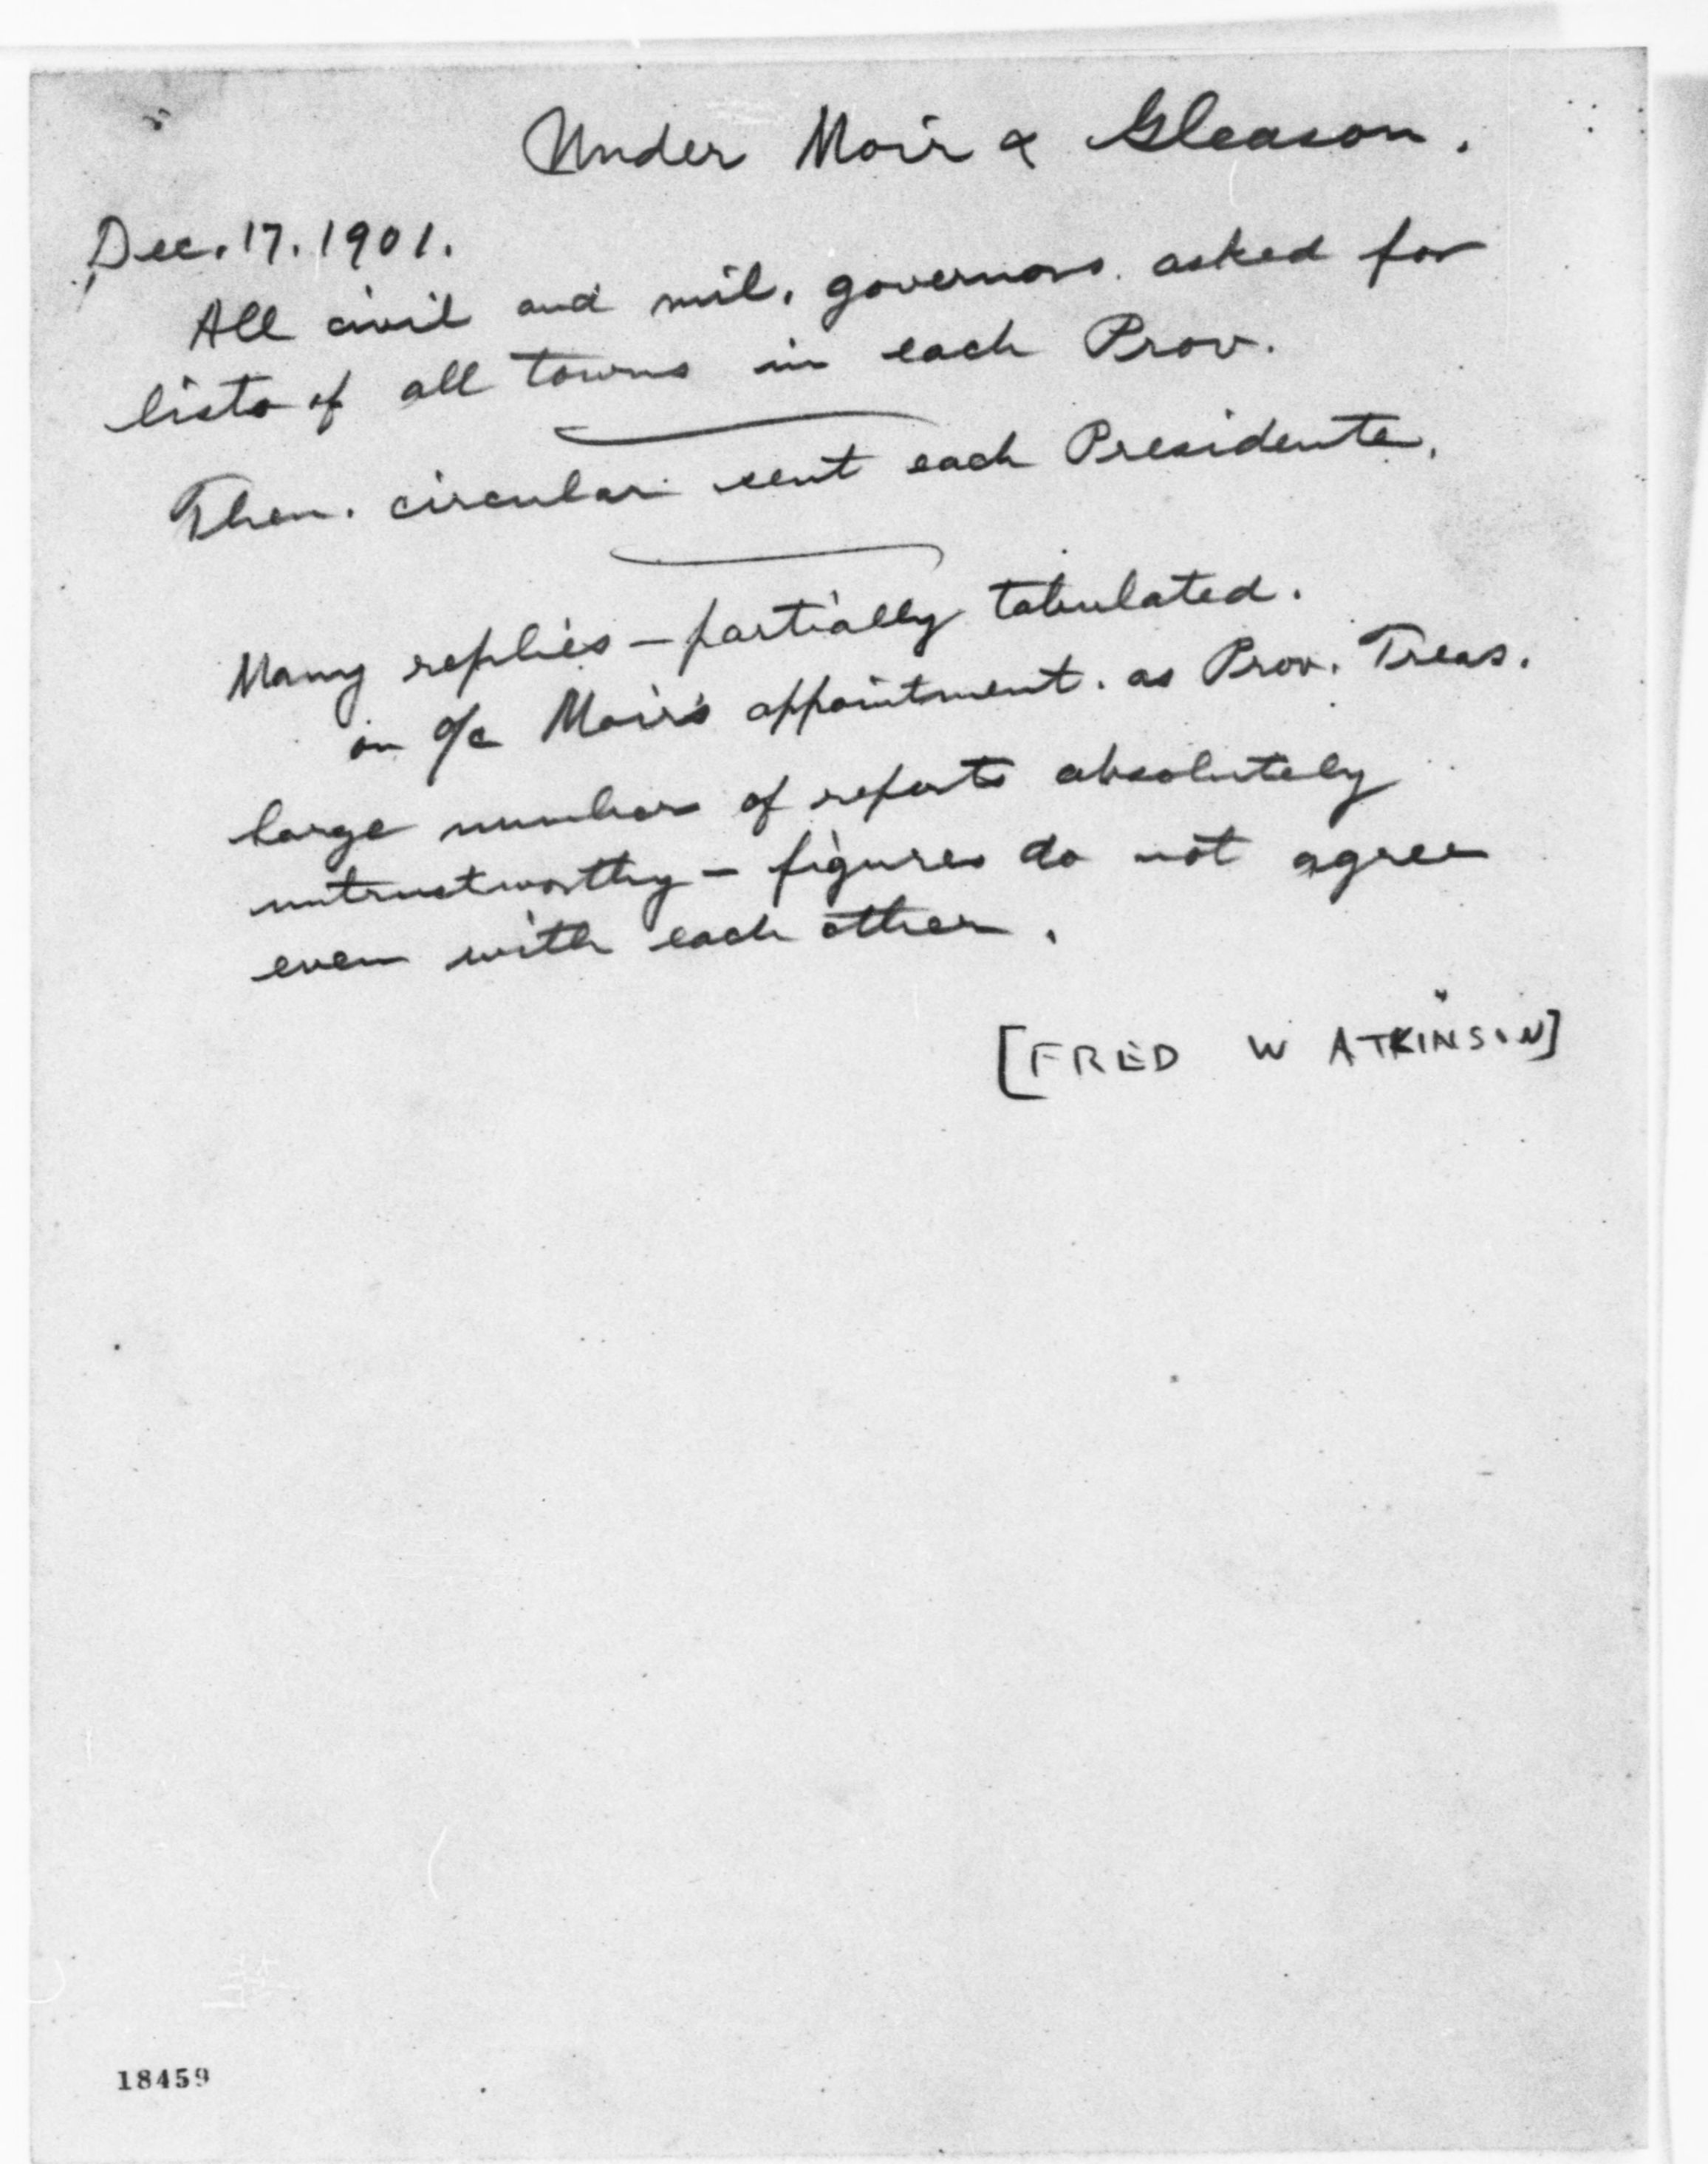 Under Moir & Gleason.
Dec. 17. 1901.
All civil and mil. governors asked for
lists of all towns in each Prov.
Then. circular sent each Presidente.
Many replies – partially tabulated.
on a/c Moir's appointment. as Prov. Treas.
large number of reports absolutely
untrustworthy – figures do not agree
even with each other.
[FRED W ATKINSON]
18459